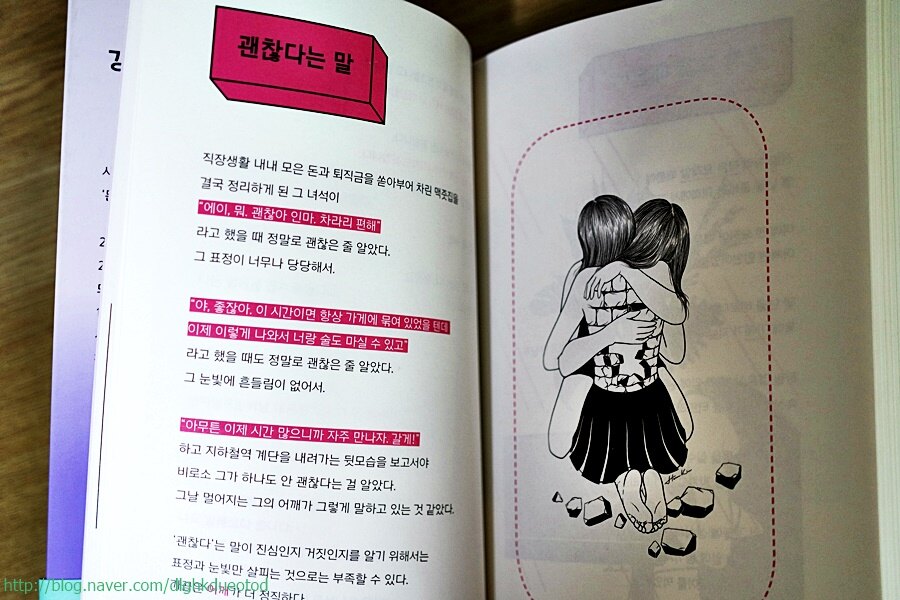 괜찮다는 말
직장생활 내내 모은 돈과 퇴직금을 쏟아부어 차린 맥줏집을
결국 정리하게 된 그 녀석이
"에이, 뭐. 괜찮아 인마. 차라리 편해"
라고 했을 때 정말로 괜찮은 줄 알았다.
그 표정이 너무나 당당해서.
"야, 좋잖아. 이 시간이면 항상 가게에 묶여 있었을 텐데
이제 이렇게 나와서 너랑 술도 마실 수 있고"
라고 했을 때도 정말로 괜찮은 줄 알았다.
그 눈빛에 흔들림이 없어서.
"아무튼 이제 시간 많으니까 자주 만나자. 갈게!"
하고 지하철역 계단을 내려가는 뒷모습을 보고서야
비로소 그가 하나도 안 괜찮다는 걸 알았다.
그날 멀어지는 그의 어깨가 그렇게 말하고 있는 것 같았다.
'괜찮다'는 말이 진심인지 거짓인지를 알기 위해서는
표정과 눈빛만 살피는 것으로는 부족할 수 있다.
더 정직하다